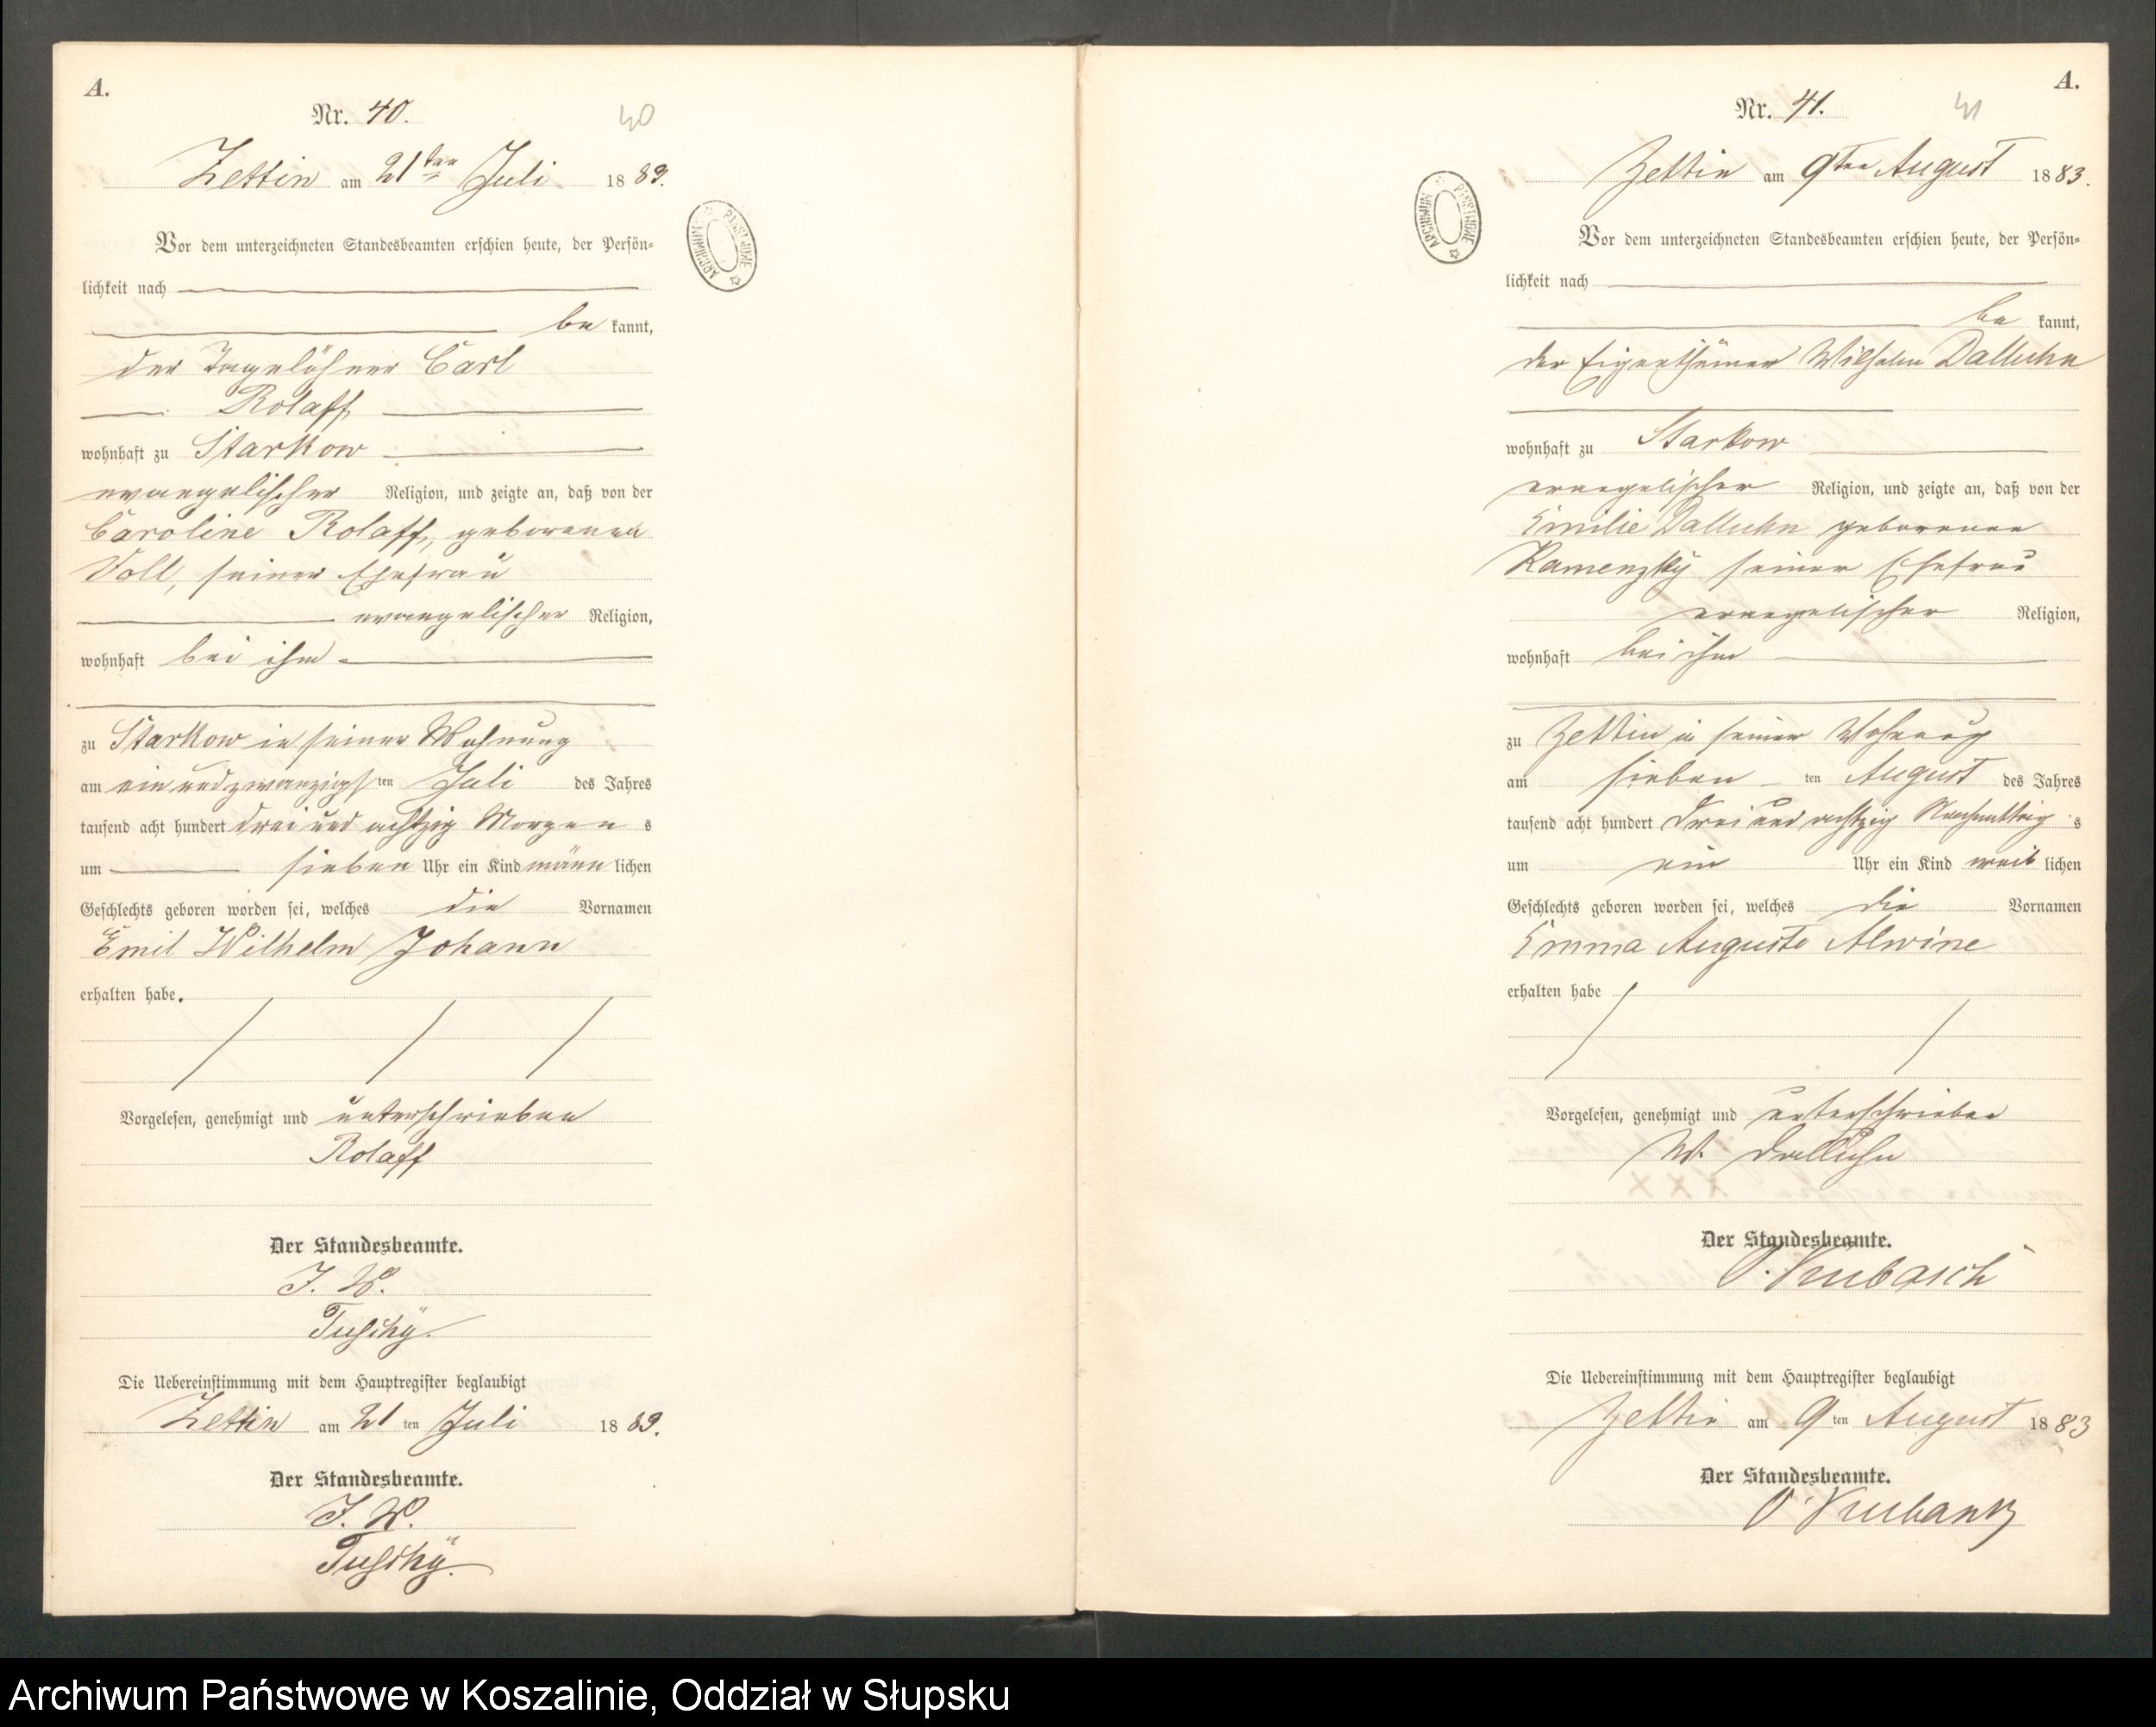 A.
Nr. 40.
40
Zettin am 21ten Juli 1883.
Vor dem unterzeichneten Standesbeamten erschien heute, der Persön=
lichkeit nach
be kannt,
der Tagelöhner Carl
Rolaff
wohnhaft zu Starkow
evangelischer Religion, und zeigte an, daß von der
Caroline Rolaff, geborenen
Voll, seiner Ehefrau
evangelischer Religion,
wohnhaft bei ihm
zu Starkow in seiner Wohnung
am ein und zwanzigsten Juli des Jahres
tausend acht hundert drei und achtzig Morgens
um sieben Uhr ein Kind männlichen
Geschlechts geboren worden sei, welches die Vornamen
Emil Wilhelm Johann
erhalten habe.
Vorgelesen, genehmigt und unterschrieben
Rolaff
Der Standesbeamte.
J. V.
Die Uebereinstimmung mit dem Hauptregister beglaubigt
Zettin am 21ten Juli 1883.
Der Standesbeamte.
J. V.
ARCHIWUM PAŃSTWOWE
A.
Nr. 41.
41
Zettin am 9ten August 1883.
Vor dem unterzeichneten Standesbeamten erschien heute, der Persön=
lichkeit nach
be kannt,
der Eigenthümer Wilhelm Dalluhn
wohnhaft zu Starkow
evangelischer Religion, und zeigte an, daß von der
Emilie Dalluhn geborenen
Kamenzky seiner Ehefrau
evangelischer Religion,
wohnhaft bei ihm
zu Zettin in seiner Wohnung
am siebenten August des Jahres
tausend acht hundert drei und achtzig Nachmittags
um ein Uhr ein Kind weiblichen
Geschlechts geboren worden sei, welches die Vornamen
Emma Auguste Alwine
erhalten habe
Vorgelesen, genehmigt und unterschrieben
W. Dalluhn
Der Standesbeamte.
Die Uebereinstimmung mit dem Hauptregister beglaubigt
Zettin am 9ten August 1883
Der Standesbeamte.
ARCHIWUM PAŃSTWOWE
Archiwum Państwowe w Koszalinie, Oddział w Słupsku